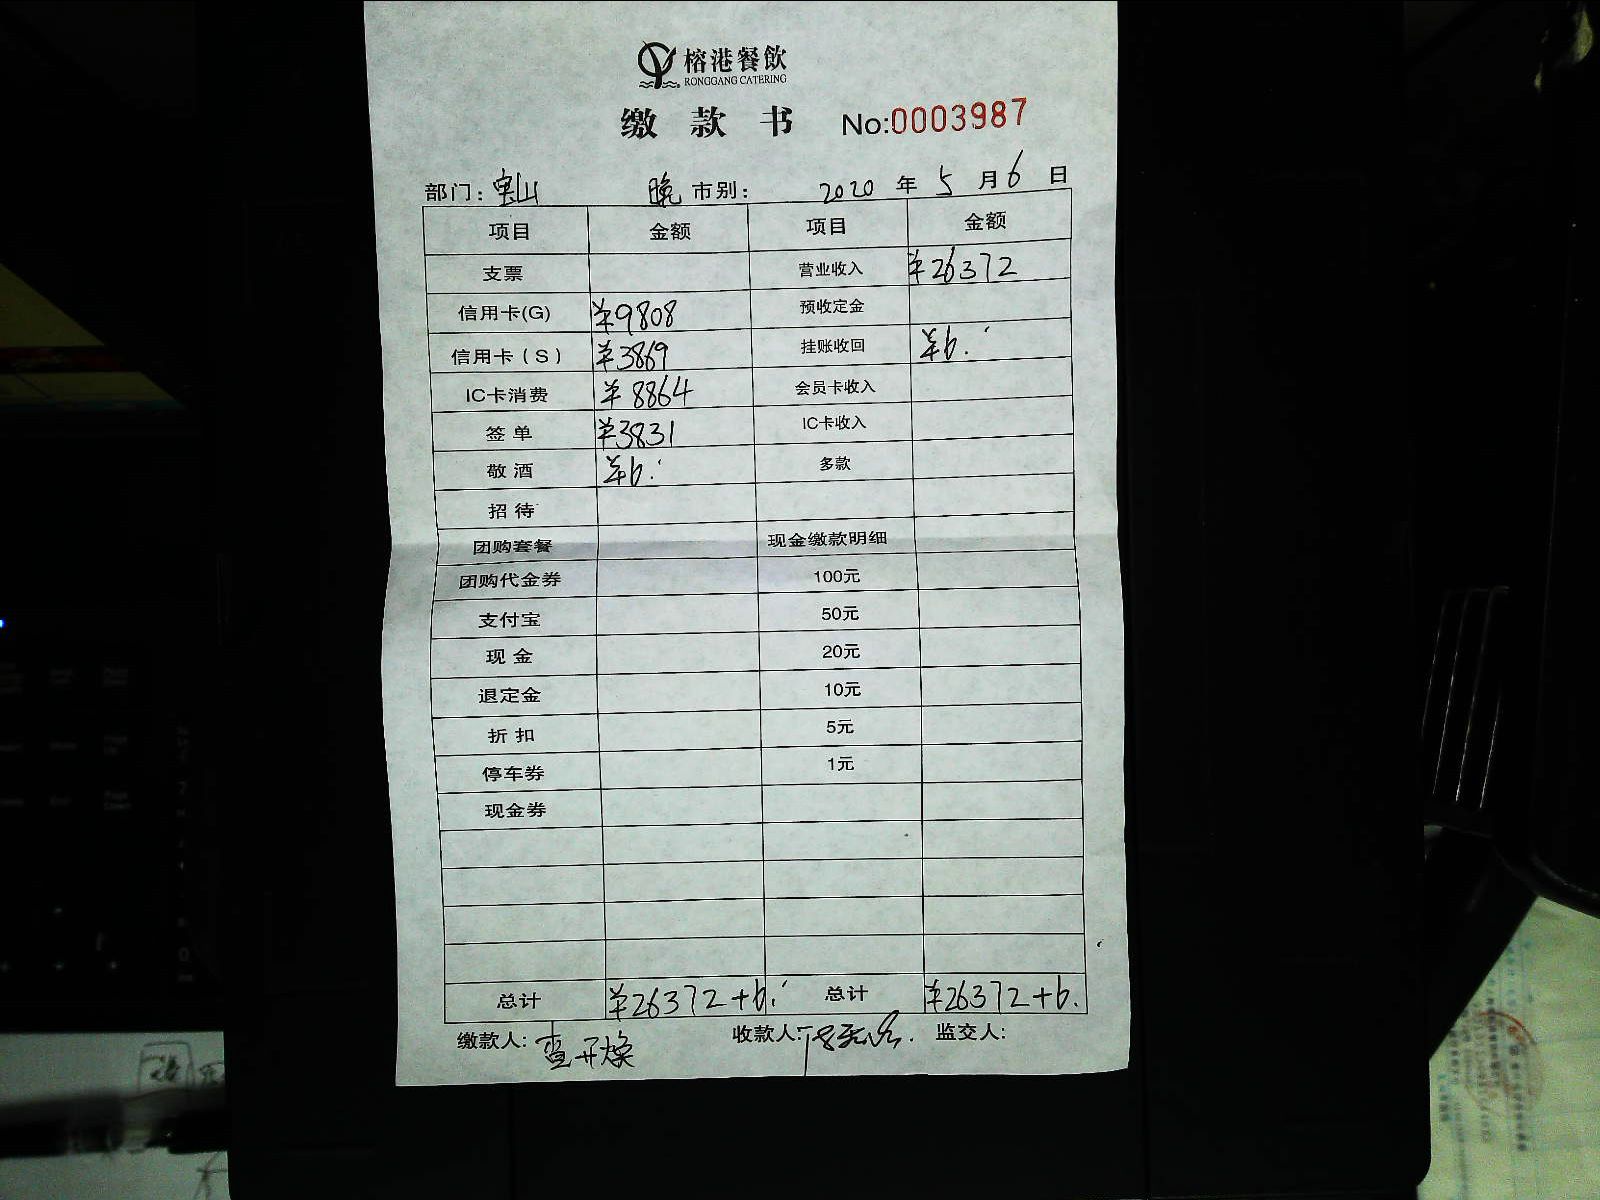 榕港餐飲
RONGGANG CATERING
缴款书 No:0003987
部门: 宝山 晚 市别: 2020 年 5 月 6 日
项目 金额 项目 金额
支票 营业收入 ¥26372
信用卡(G) ¥9808 预收定金
信用卡(S) ¥3869 挂账收回 ¥6.
IC卡消费 ¥8864 会员卡收入
签单 ¥3831 IC卡收入
敬酒 ¥6. 多款
招待
团购套餐 现金缴款明细
团购代金券 100元
支付宝 50元
现金 20元
退定金 10元
折扣 5元
停车券 1元
现金券
总计 ¥26372+6. 总计 ¥26372+6.
缴款人: 收款人: 监交人: